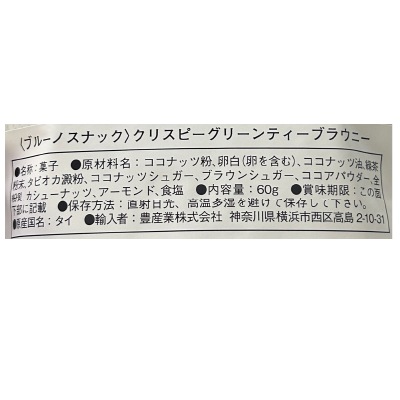 〈ブルーノスナック〉クリスピーグリーンティーブラウニー
●名称：菓子 ●原材料名：ココナッツ粉、卵白(卵を含む)、ココナッツ油、緑茶
粉末、タピオカ澱粉、ココナッツシュガー、ブラウンシュガー、ココアパウダー、全
卵、カシューナッツ、アーモンド、食塩 ●内容量：60g ●賞味期限：この面
下部に記載 ●保存方法：直射日光、高温多湿を避けて保存して下さい。
●原産国名：タイ ●輸入者：豊産業株式会社 神奈川県横浜市西区高島2-10-31